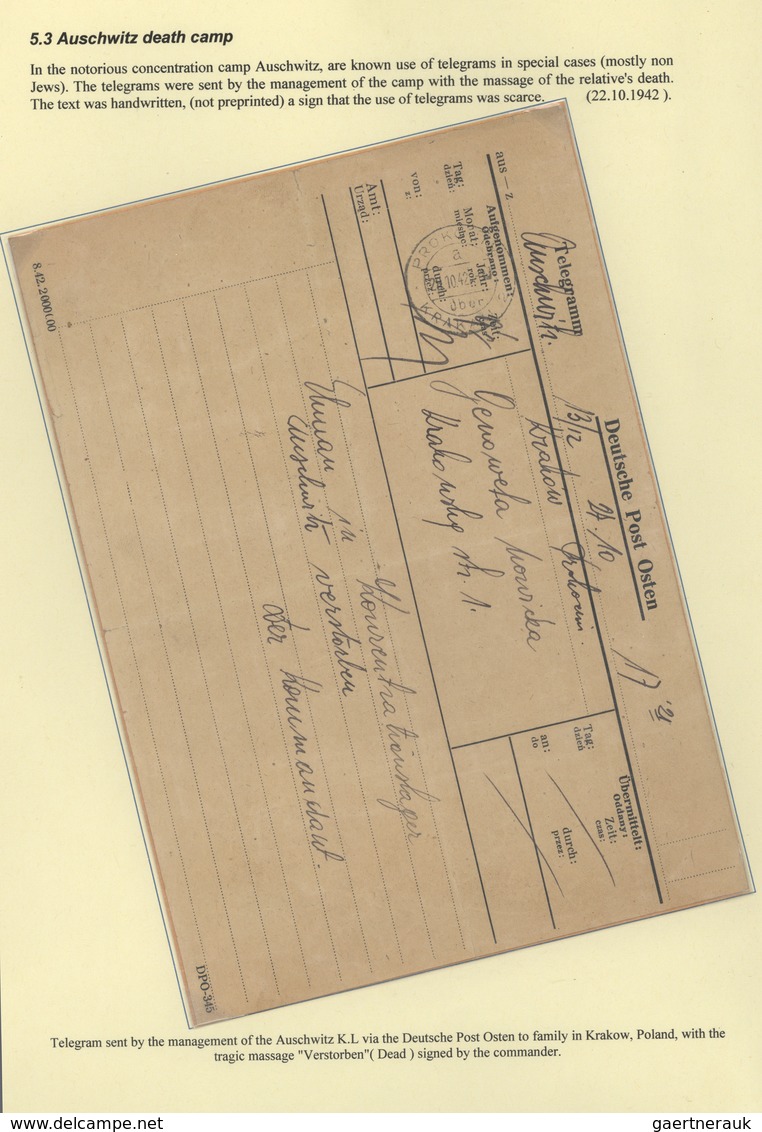 5.3 Auschwitz death camp
In the notorious concentration camp Auschwitz, are known use of telegrams in special cases (mostly non
Jews). The telegrams were sent by the management of the camp with the massage of the relative's death.
The text was handwritten, (not preprinted) a sign that the use of telegrams was scarce. (22.10.1942 ).
Deutsche Post Osten
Telegramm
aus – z
Auschwitz.
13/2
27.10
17
Aufgenommen:
Odebrano:
Tag:
dzień:
Monat:
miesiąc:
Jahr:
rok:
Zeit:
von:
z:
durch:
przez:
Amt:
Urząd:
Kraków
Genowefa
Krakowska
1.
Übermittelt:
Oddany:
Tag:
dzień
Zeit:
czas:
an:
do
durch:
przez:
Konzentrationslager
in
Auschwitz verstorben
Der Kommandant.
8.42.2000(.00
DPO-345
Telegram sent by the management of the Auschwitz K.L via the Deutsche Post Osten to family in Krakow, Poland, with the
tragic massage "Verstorben"( Dead ) signed by the commander.
www.delcampe.net
gaertnerauk